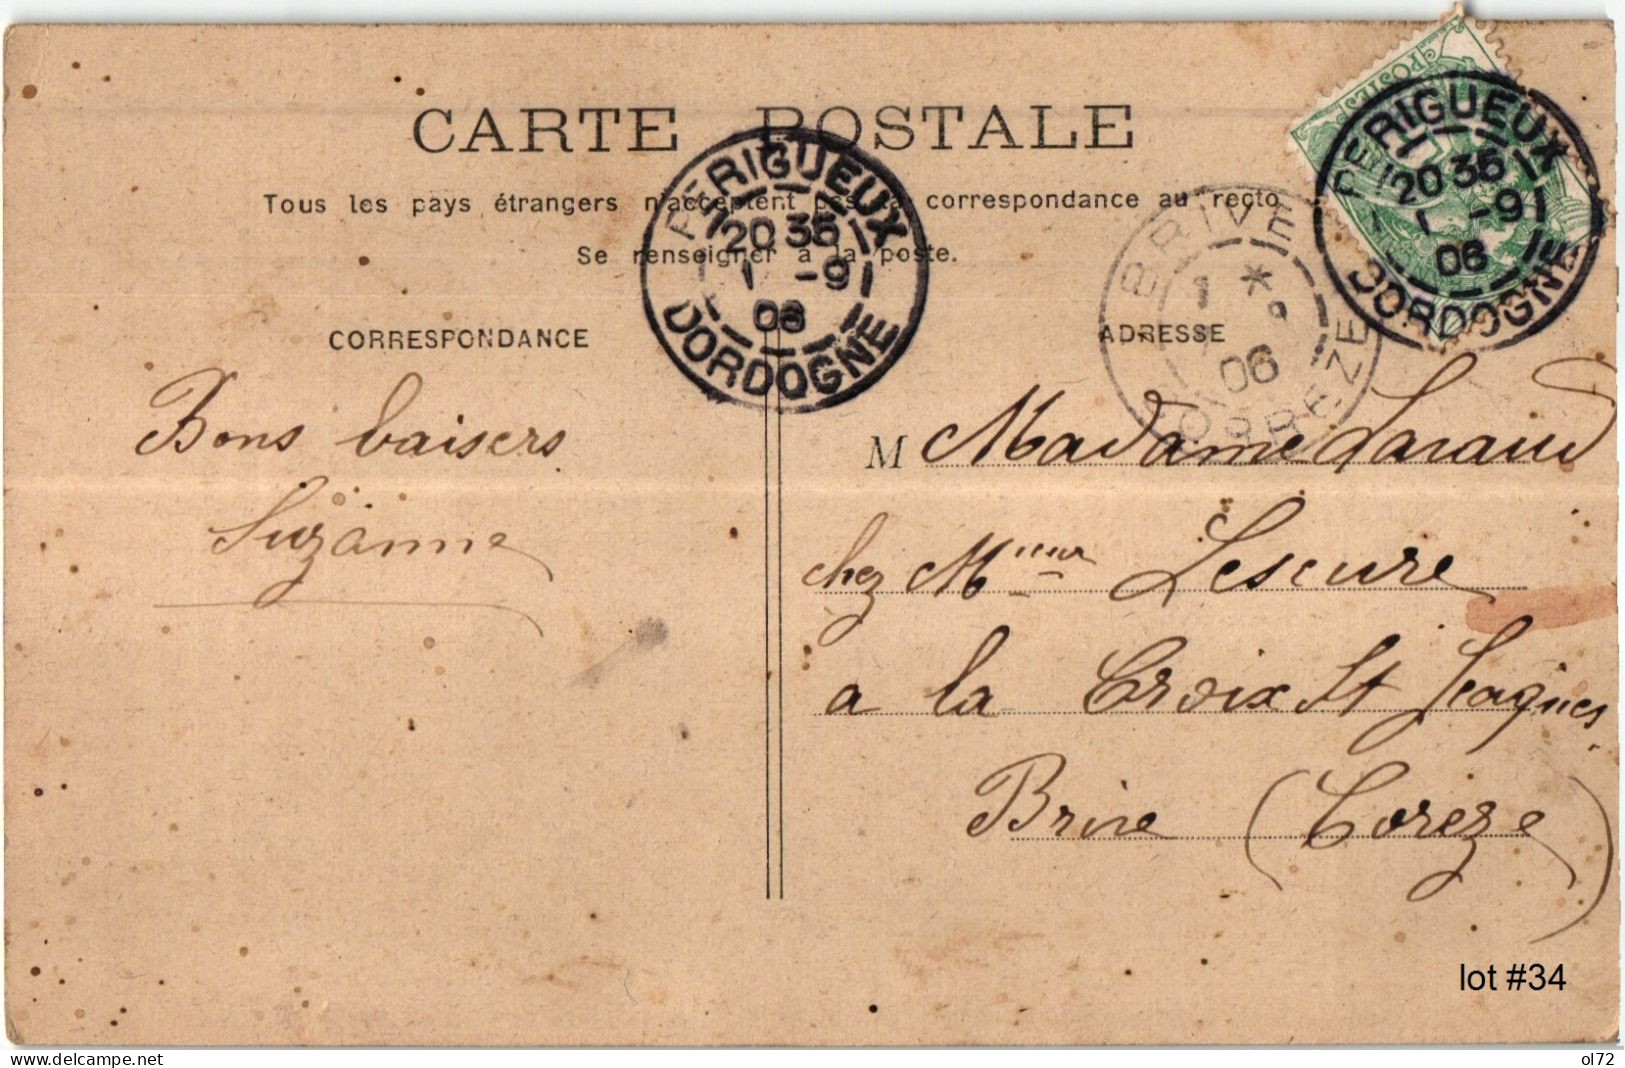 CARTE POSTALE
Tous les pays étrangers n'acceptent pas la correspondance au recto
Se renseigner à la poste.
CORRESPONDANCE
ADRESSE
POSTES
PÉRIGUEUX
20 35
1 -9
06
DORDOGNE
PÉRIGUEUX
20 35
1 -9
06
DORDOGNE
BRIVE
1 * 9
06
CORREZE
Bons baisers
Suzanne
M Madame Laraud
chez Mme Lescure
a la Croix St Jeaques
Brive (Coreze)
lot #34
www.delcampe.net
ol72